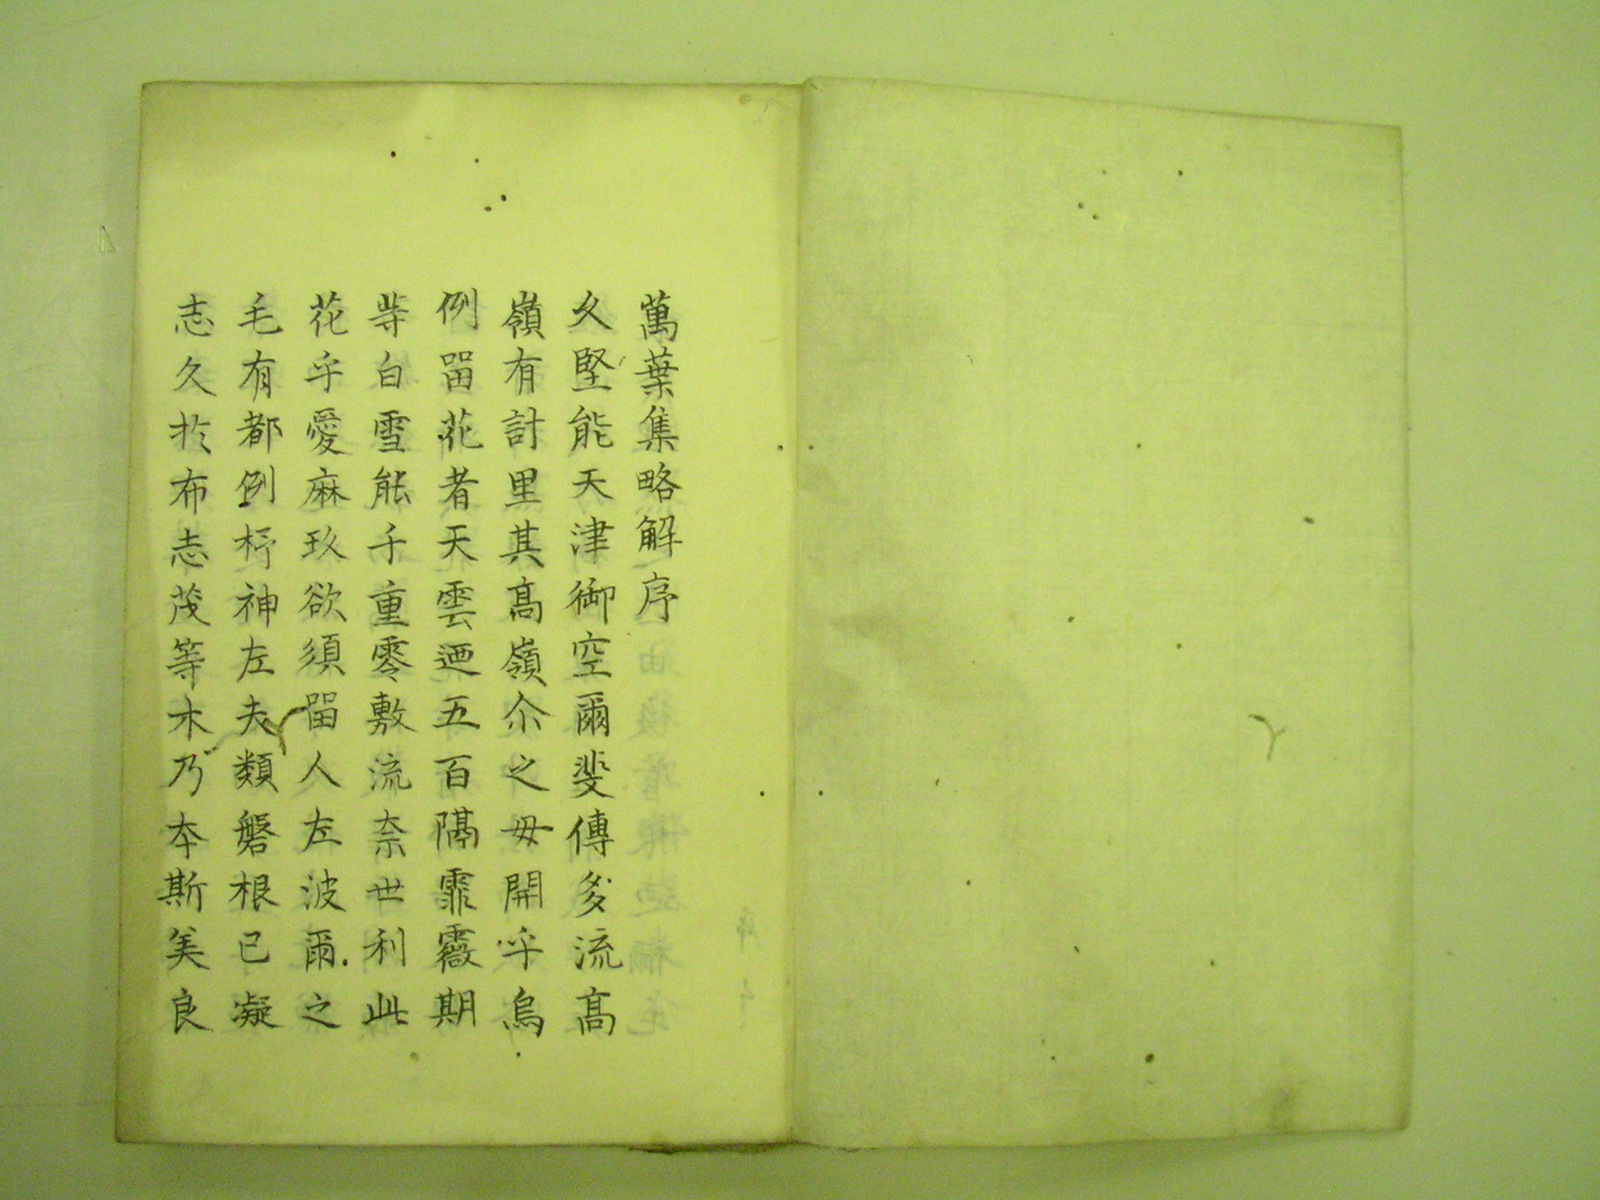 萬葉集略解序
久堅能天津御空爾斐傳多流高
嶺有計里其高嶺尒之毋開乎烏
例畱花者天雲迺五百隔霏霰期
等白雪能千重零敷流奈世利此
花乎愛麻玖欲須畱人左波爾之
毛有都例杼神左夫類磐根已凝
志久於布志茂等木乃本斯美良